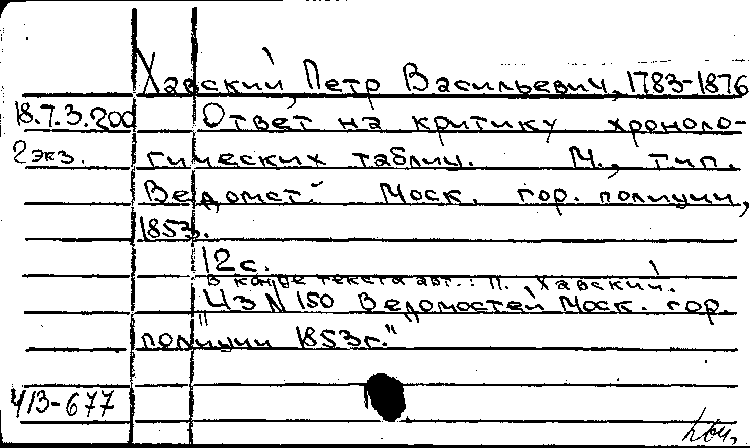 Хавский, Петр Васильевич, 1783-1876
18.7.3.200 Ответ на критику хроноло-
2 экз. гических таблиц. М., тип.
Ведомст. Моск. гор. полиции,
1853.
12 с.
В конце текста авт.: П. Хавский.
"Из N 150 Ведомостей Моск. гор.
полиции 1853г."
413-677